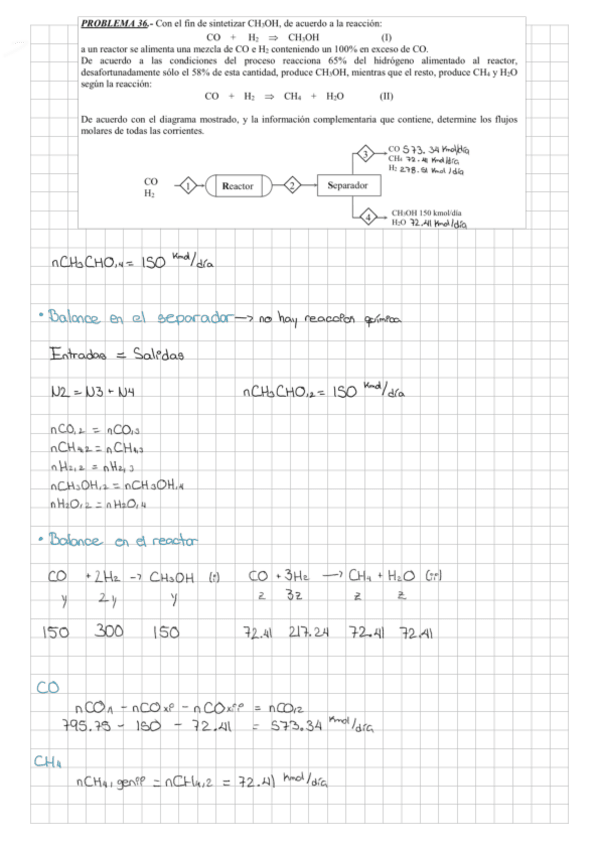 PROBLEMA 36.- Con el fin de sintetizar CH₃OH, de acuerdo a la reacción:
CO + H₂ ⇒ CH₃OH (I)
a un reactor se alimenta una mezcla de CO e H₂ conteniendo un 100% en exceso de CO.
De acuerdo a las condiciones del proceso reacciona 65% del hidrógeno alimentado al reactor,
desafortunadamente sólo el 58% de esta cantidad, produce CH₃OH, mientras que el resto, produce CH₄ y H₂O
según la reacción:
CO + H₂ ⇒ CH₄ + H₂O (II)
De acuerdo con el diagrama mostrado, y la información complementaria que contiene, determine los flujos
molares de todas las corrientes.
CO 573.34 Kmol/día
CH₄ 72.41 Kmol/día
H₂ 278.51 Kmol/día
3
CO
H₂
1
Reactor
2
Separador
4
CH₃OH 150 kmol/día
H₂O 72.41 Kmol/día
nCH₃CHO,4 = 150 Kmol/día
• Balance en el separador → no hay reaccion química
Entradas = Salidas
N2 = N3 + N4 nCH₃CHO,2 = 150 Kmol/día
nCO,2 = nCO,3
nCH4,2 = nCH4,3
nH2,2 = nH2,3
nCH3OH,2 = nCH3OH,4
nH2O,2 = nH2O,4
• Balance en el reactor
CO + 2H₂ → CH₃OH (i) CO + 3H₂ → CH₄ + H₂O (ii)
y 2y y z 3z z z
150 300 150 72.41 217.24 72.41 72.41
CO
nCO,1 - nCO - nCO = nCO,2
795.75 - 150 - 72.41 = 573.34 Kmol/día
CH₄
nCH₄, gen = nCH₄,2 = 72.41 Kmol/día